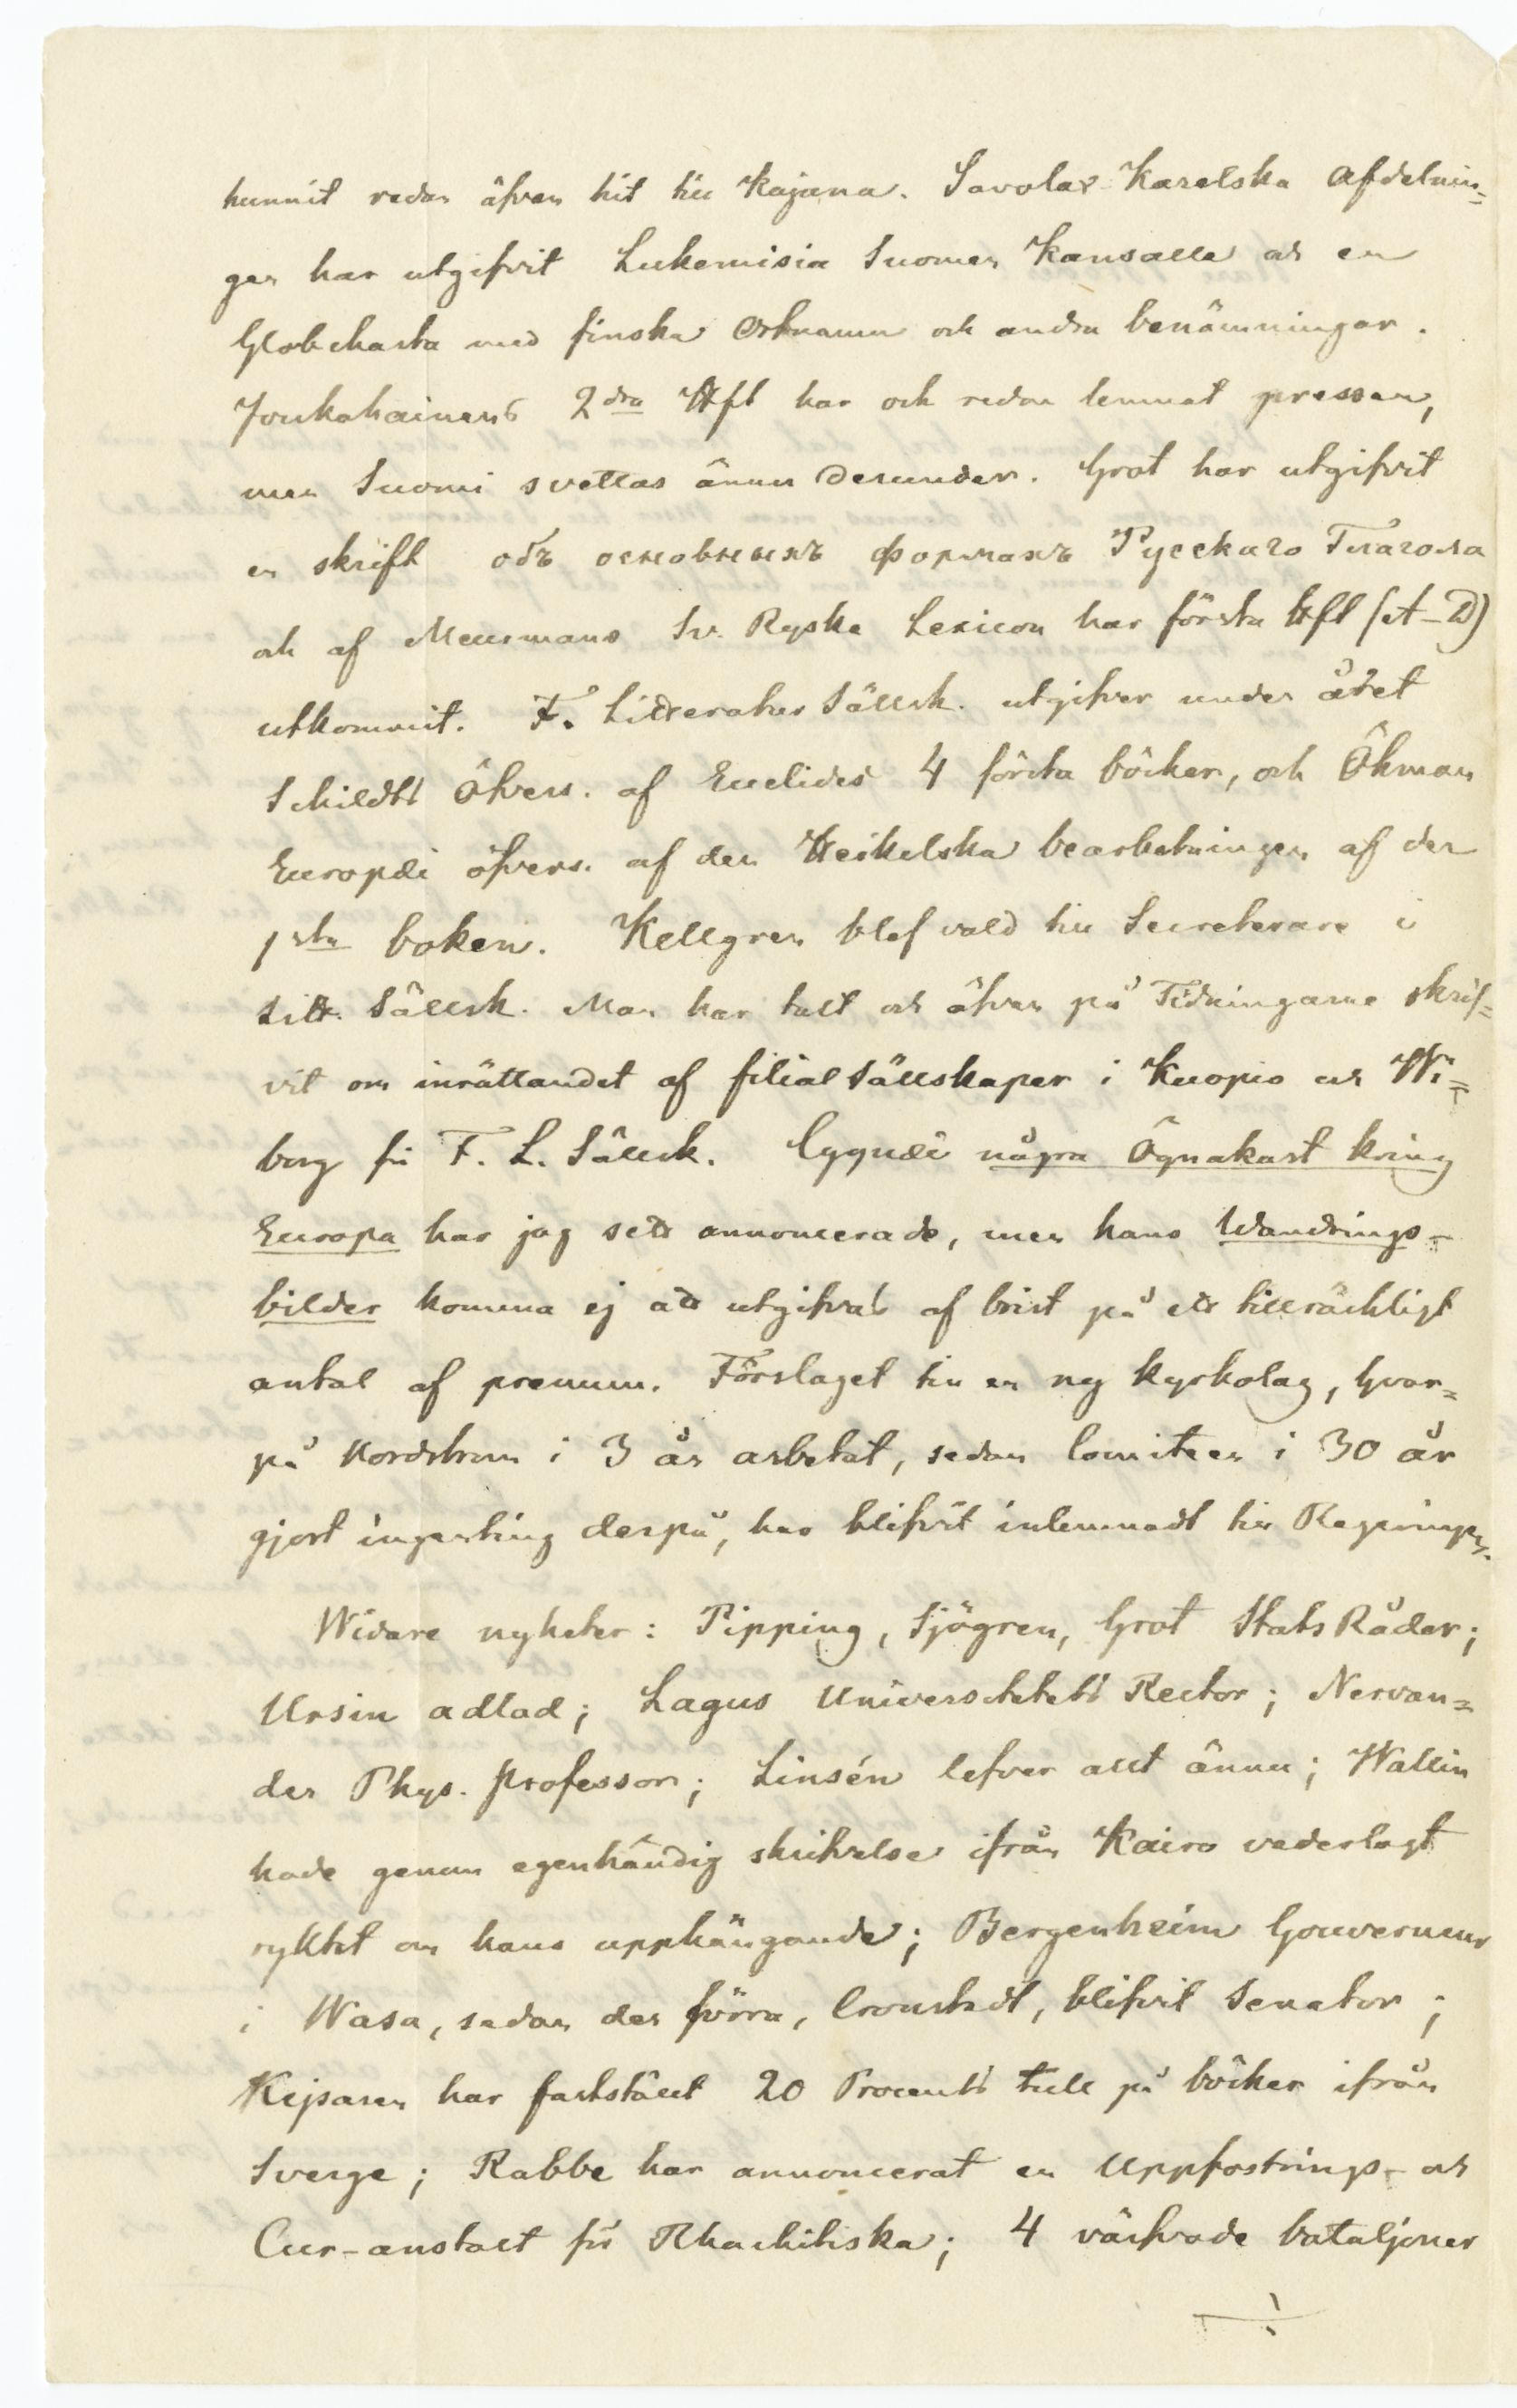 hunnit redan äfven hit till Kajana. Savolax-Karelska Afdelnin=
gen har utgifvit Lukemisia Suomen Kansalle och en
Globcharta med finska Ortnamn och andra benämningar.
Joukahainens 2dra Hft har och redan lemnat pressen,
men Suomi svettas ännu derunder. Grot har utgifvit
en skrift объ основныхъ формахъ Русскаго Глагола
och af Meurmans Sv. Ryska Lexicon har första Hft (A–D)
utkommit. F. Litteratur Sällsk. utgifver under året
Schildts Öfvers. af Euclides 4 första böcker, och Öhman
Europæi öfvers. af den Heikelska bearbetningen af den
1sta boken. Kellgren blef vald till Secreterare i
Litt. Sällsk. Man har talt och äfven på Tidningarne skrif=
vit om inrättandet af filial Sällskaper i Kuopio och Wi=
borg för F. L. Sällsk. Cygnæi några Ögnakast kring
Europa har jag sett annoncerade, men hans Wandrings-
bilder komma ej att utgifvas af brist på ett tillräckligt
antal af prenum. Förslaget till en ny kyrkolag, hvar=
på Nordström i 3 år arbetat, sedan Comiteen i 30 år
gjort ingenting derpå, har blifvit inlemnadt till Regeringen.
Widare nyheter: Pipping, Sjögren, Grot Stats Råder;
Ursin adlad; Lagus Universitetets Rector; Nervan=
der Phys. professor; Linsén lefver allt ännu; Wallin
hade genom egenhändig skrifvelse ifrån Kairo vederlagt
ryktet om hans upphängande; Bergenheim Gouverneur
i Wasa, sedan den förra, Cronstedt, blifvit Senator;
Kejsaren har fastställt 20 Procents tull på böcker ifrån
Sverge; Rabbe har annoncerat en Uppfostrings- och
Cur-anstalt för Rhachitiska; 4 värfvade bataljoner